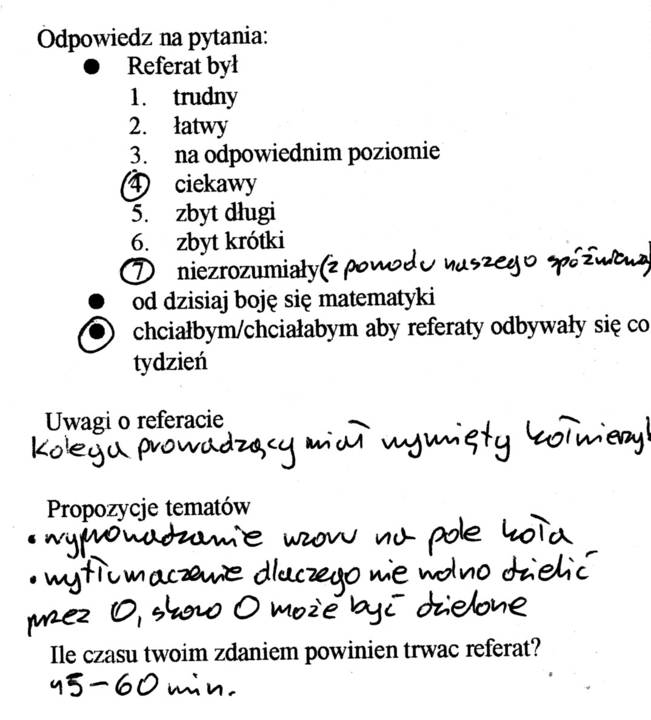 Odpowiedz na pytania:
● Referat był
1. trudny
2. łatwy
3. na odpowiednim poziomie
4 ciekawy
5. zbyt długi
6. zbyt krótki
7 niezrozumiały (z powodu naszego spóźnienia)
● od dzisiaj boję się matematyki
● chciałbym/chciałabym aby referaty odbywały się co
tydzień
Uwagi o referacie
Kolega prowadzący miał wymięty kołnierzyk
Propozycje tematów
• wyprowadzanie wzoru na pole koła
• wytłumaczenie dlaczego nie wolno dzielić
przez 0, skoro 0 może być dzielone
Ile czasu twoim zdaniem powinien trwac referat?
45-60 min.